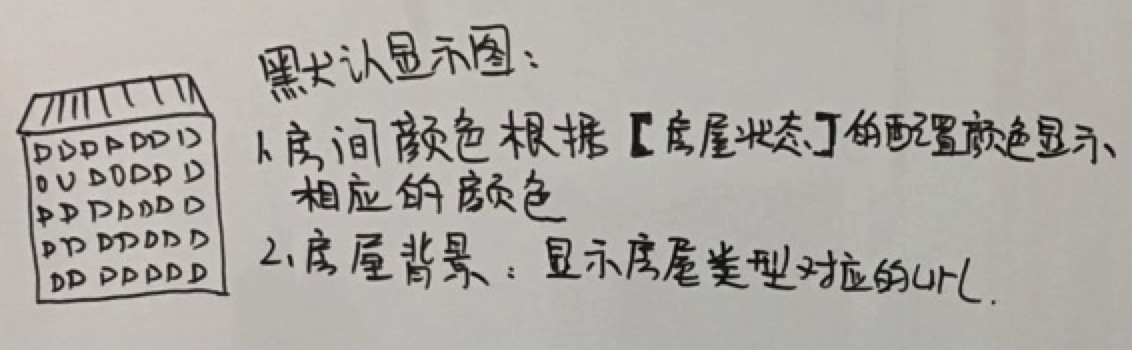 默认显示图：
1、房间颜色根据【房屋状态】的配置颜色显示、
相应的颜色
2、房屋背景：显示房屋类型对应的url.